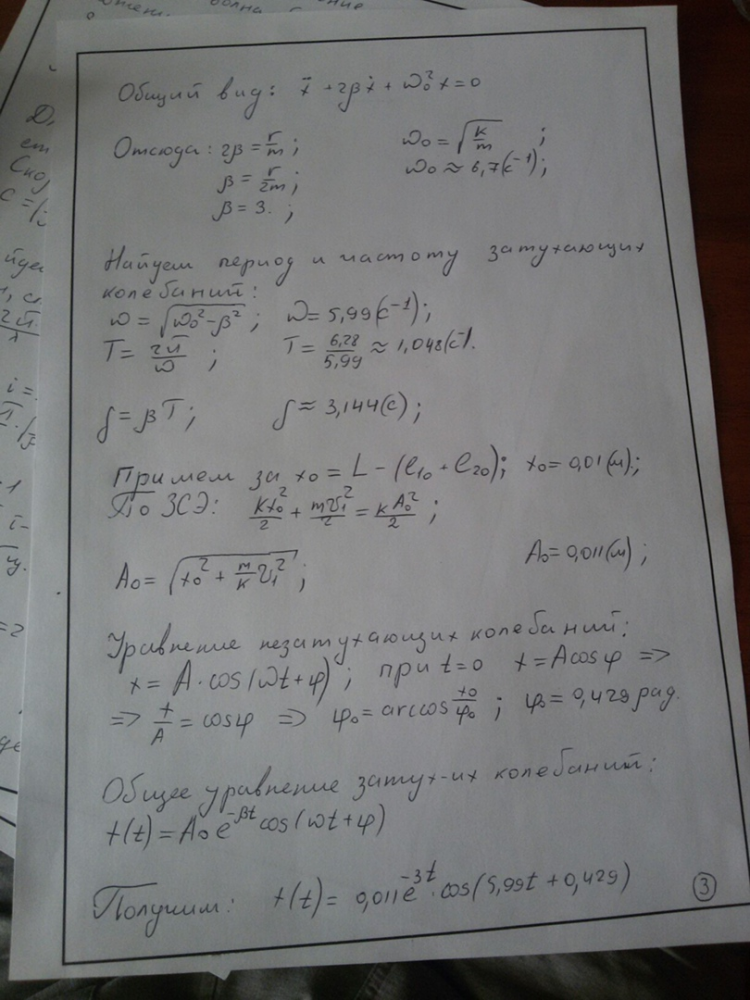 Общий вид: ẍ + 2βẋ + ω₀²x = 0
Отсюда: 2β = r/m; ω₀ = √(k/m);
β = r/2m; ω₀ ≈ 6,7(с⁻¹);
β = 3.;
Найдем период и частоту затухающих
колебаний:
ω = √(ω₀² - β²); ω = 5,99(с⁻¹);
T = 2π/ω; T = 6,28/5,99 ≈ 1,048(с⁻¹).
δ = βT; δ ≈ 3,144(с);
Примем за x₀ = L - (l₁₀ + l₂₀); x₀ = 0,01(м);
По ЗСЭ: kx₀²/2 + mv₁²/2 = kA₀²/2;
A₀ = √(x₀² + m/k v₁²); A₀ = 0,011(м);
Уравнение незатухающих колебаний:
x = A·cos(ωt + φ); при t = 0 x = Acosφ =>
=> x/A = cosφ => φ₀ = arccos x₀/φ₀; φ₀ = 0,429 рад.
Общее уравнение затух-их колебаний:
x(t) = A₀e^-βt cos(ωt + φ)
Получим: x(t) = 0,011e^-3t · cos(5,99t + 0,429)
3